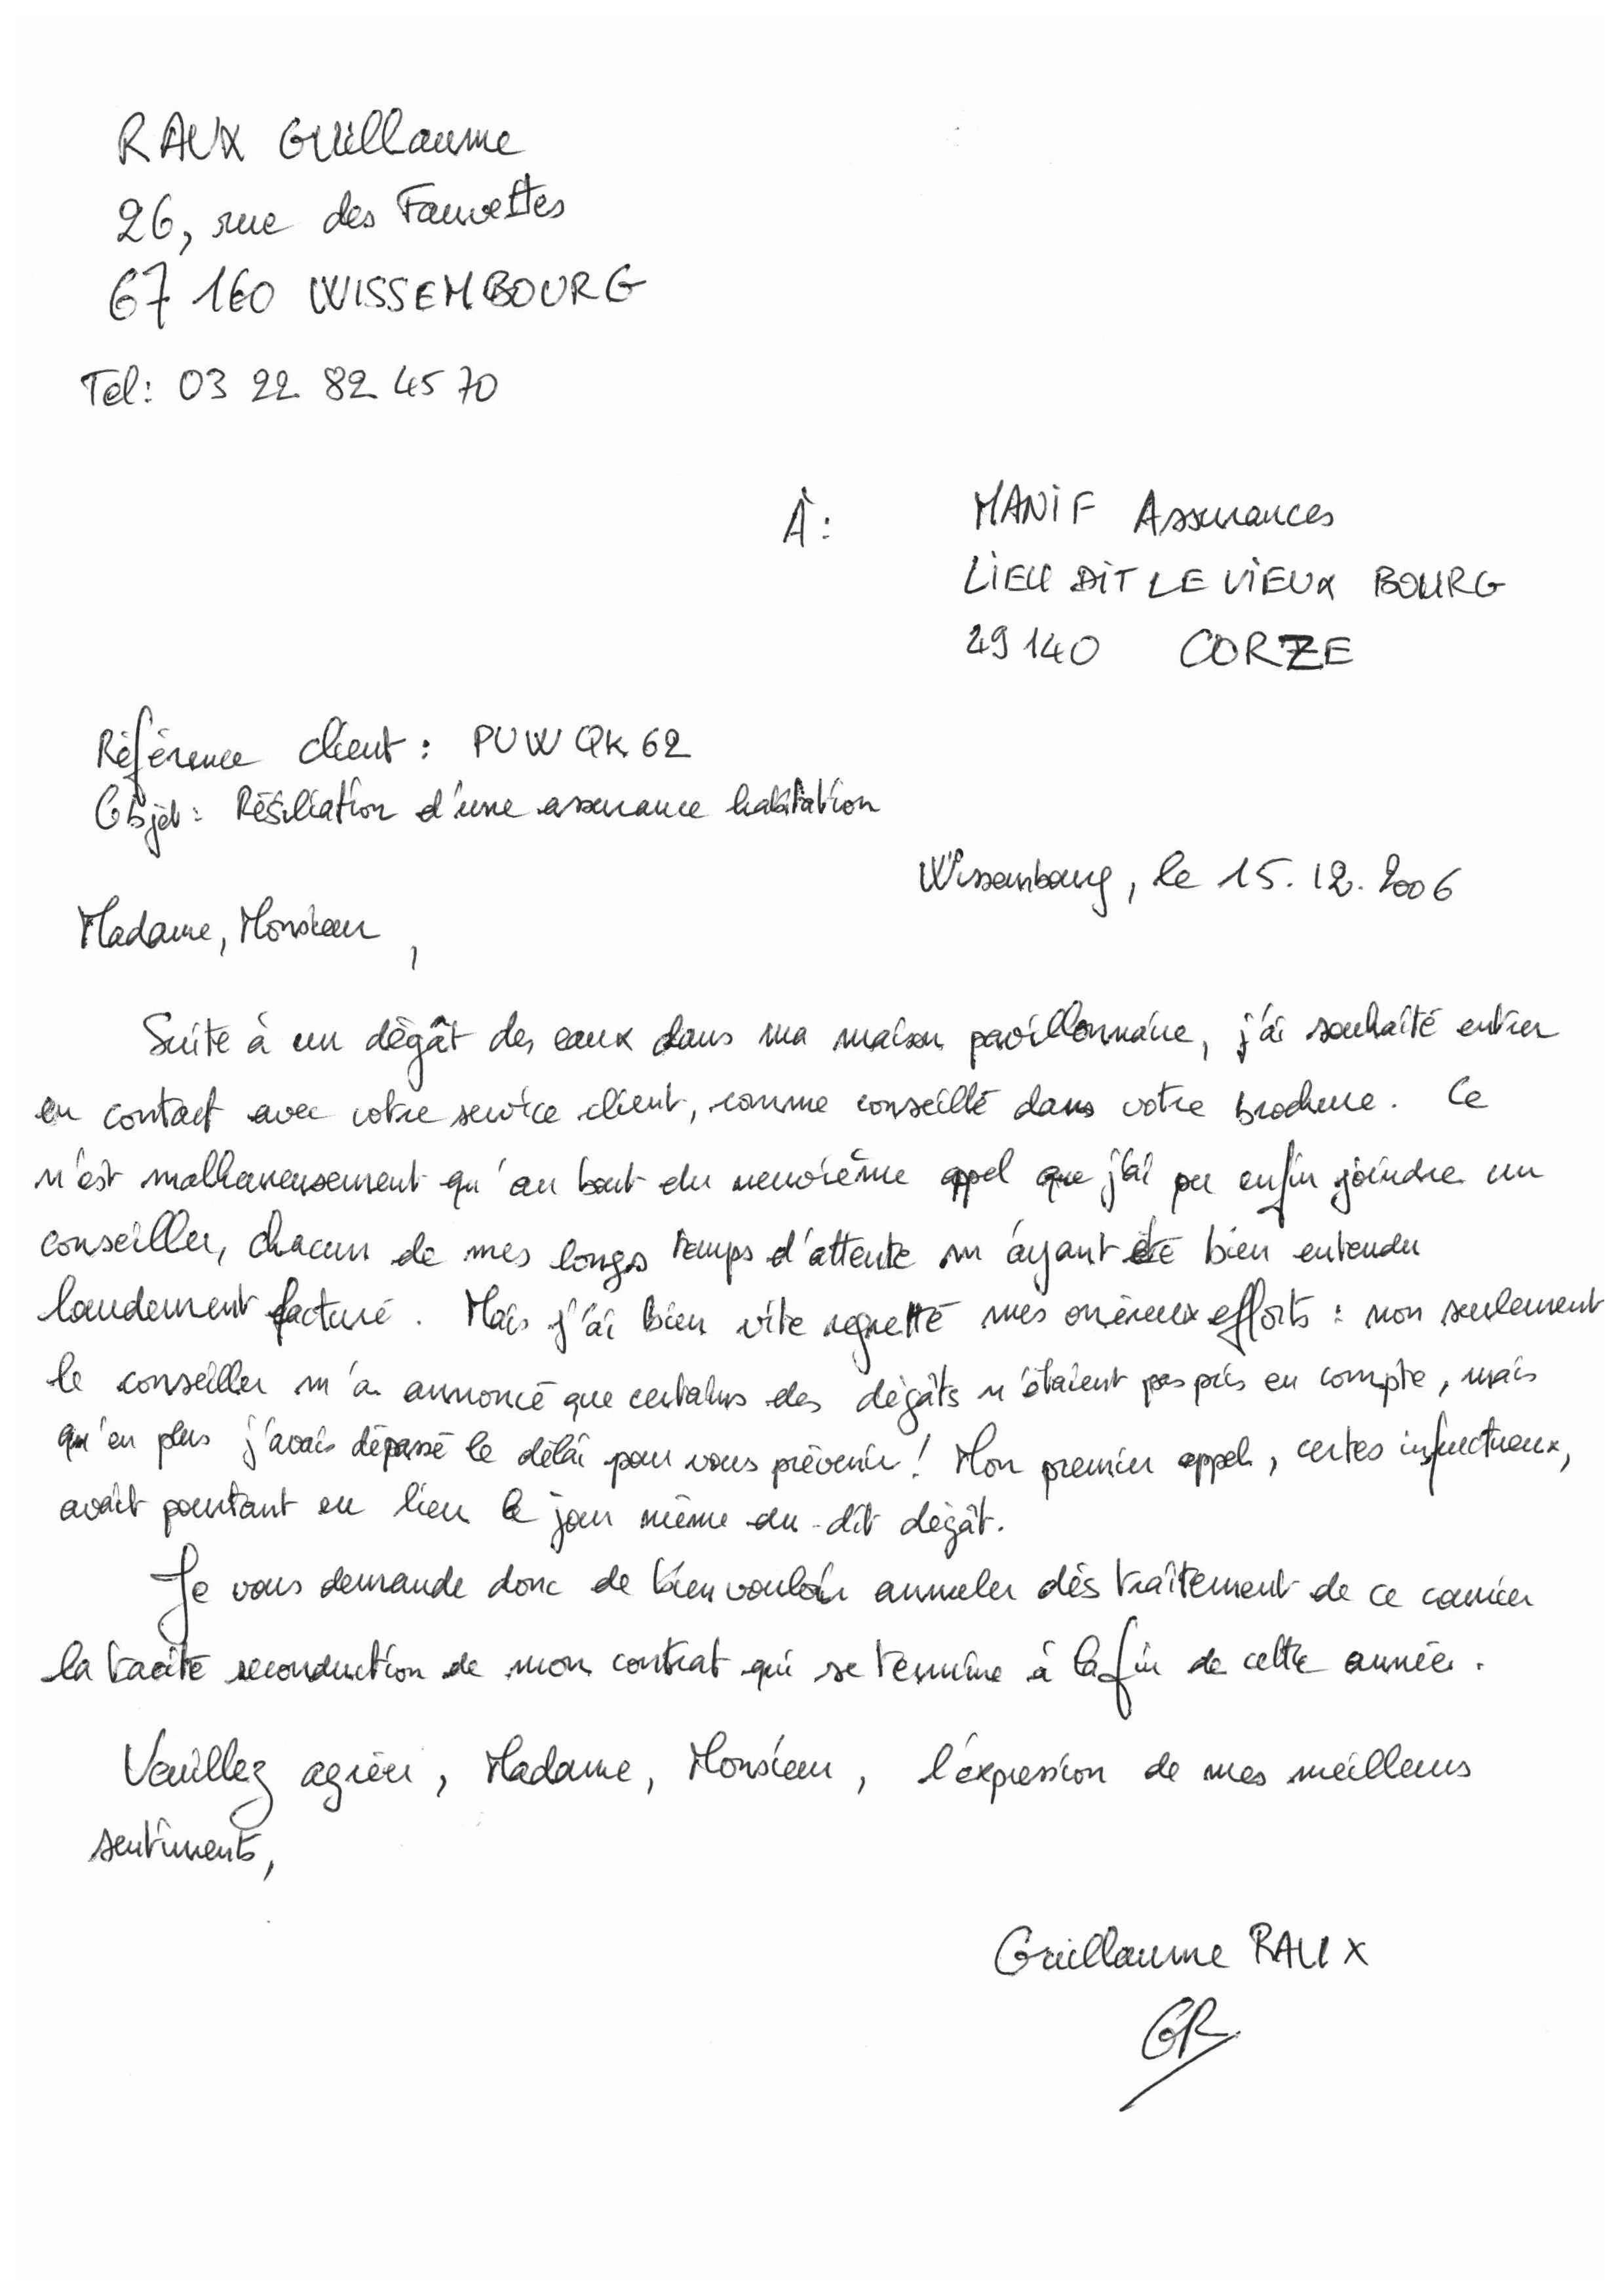 RAUX Guillaume
26, rue des Fauvettes
67 160 WISSEMBOURG
Tel: 03 22 82 45 70
À : MANIF Assurances
LIEU DIT LE VIEUX BOURG
49 140 CORZE
Référence client : PUWQK62
Objet : Résiliation d'une assurance habitation
Wissembourg, le 15.12.2006
Madame, Monsieur,
Suite à un dégât des eaux dans ma maison pavillonnaire, j'ai souhaité entrer
en contact avec votre service client, comme conseillé dans votre brochure. Ce
n'est malheureusement qu'au bout du neuvième appel que j'ai pu enfin joindre un
conseiller, chacun de mes longs temps d'attente m'ayant été bien entendu
lourdement facturé. Mais j'ai bien vite regretté mes onéreux efforts : non seulement
le conseiller m'a annoncé que certains des dégâts n'étaient pas pris en compte, mais
qu'en plus j'avais dépassé le délai pour vous prévenir ! Mon premier appel, certes infructueux,
avait pourtant eu lieu le jour même du-dit dégât.
Je vous demande donc de bien vouloir annuler dès traitement de ce courrier
la tacite reconduction de mon contrat qui se termine à la fin de cette année.
Veuillez agréer, Madame, Monsieur, l'expression de mes meilleurs
sentiments,
Guillaume RAUX
GR